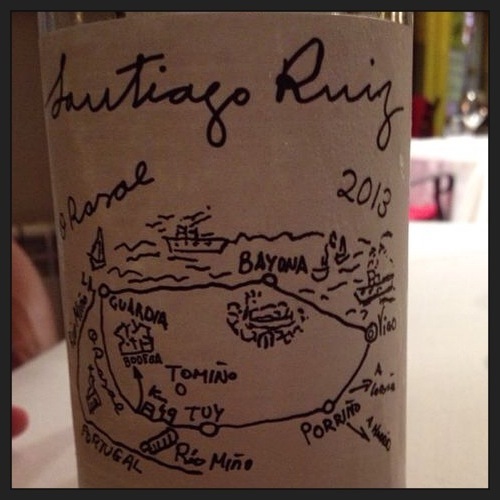 Santiago Ruiz
O Rosal
2013
BAYONA
LA
GUARDIA
Vigo
BODEGA
O Rosal
TOMIÑO
TUY
PORRIÑO
A
PORTUGAL
Río Miño